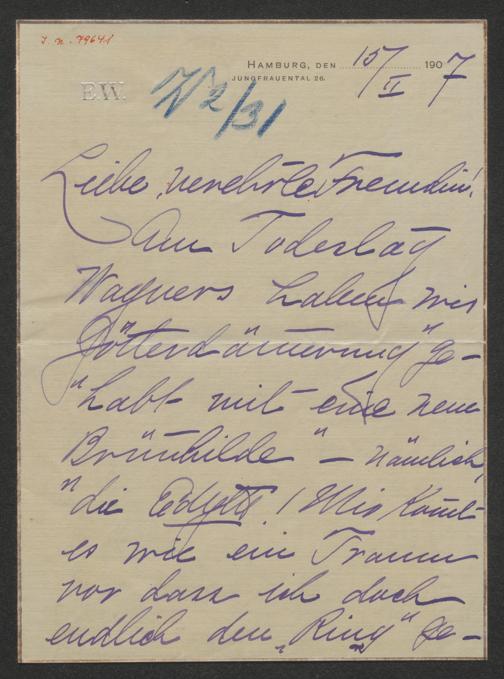 J. N. 79641
HAMBURG, DEN 15/II 1907
JUNGFRAUENTAL 26.
E.W.
2/31
Liebe, verehrte Freundin!
Am Todestag
Wagners haben wir
"Götterdämmerung" ge-
habt mit eine neue
"Brünhilde" – nämlich,
"die Edyth! Mir kommt
es wie ein Traum
vor dass ich doch
endlich den "Ring" ge-